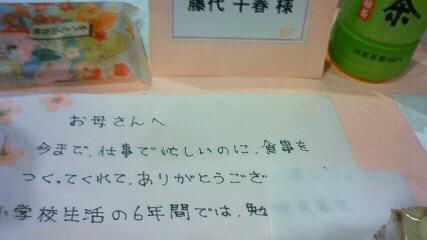 藤代 千春 様
茶
お母さんへ
今まで、仕事で忙しいのに、食事を
つくってくれて、ありがとうござ
小学校生活の6年間では、勉